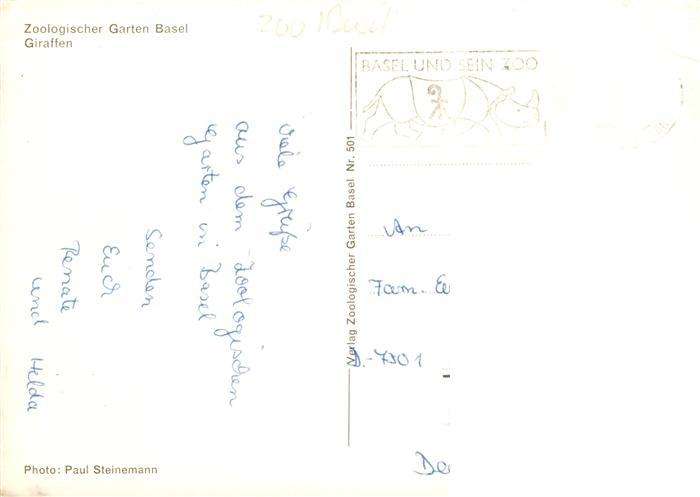 Zoologischer Garten Basel
Giraffen
BASEL UND SEIN ZOO
Viele Grüße
aus dem Zoologischen
Garten in Basel
senden
Euch
Renate
und Hilda
An
Fam.
D.-7801
Verlag Zoologischer Garten Basel Nr. 501
Photo: Paul Steinemann